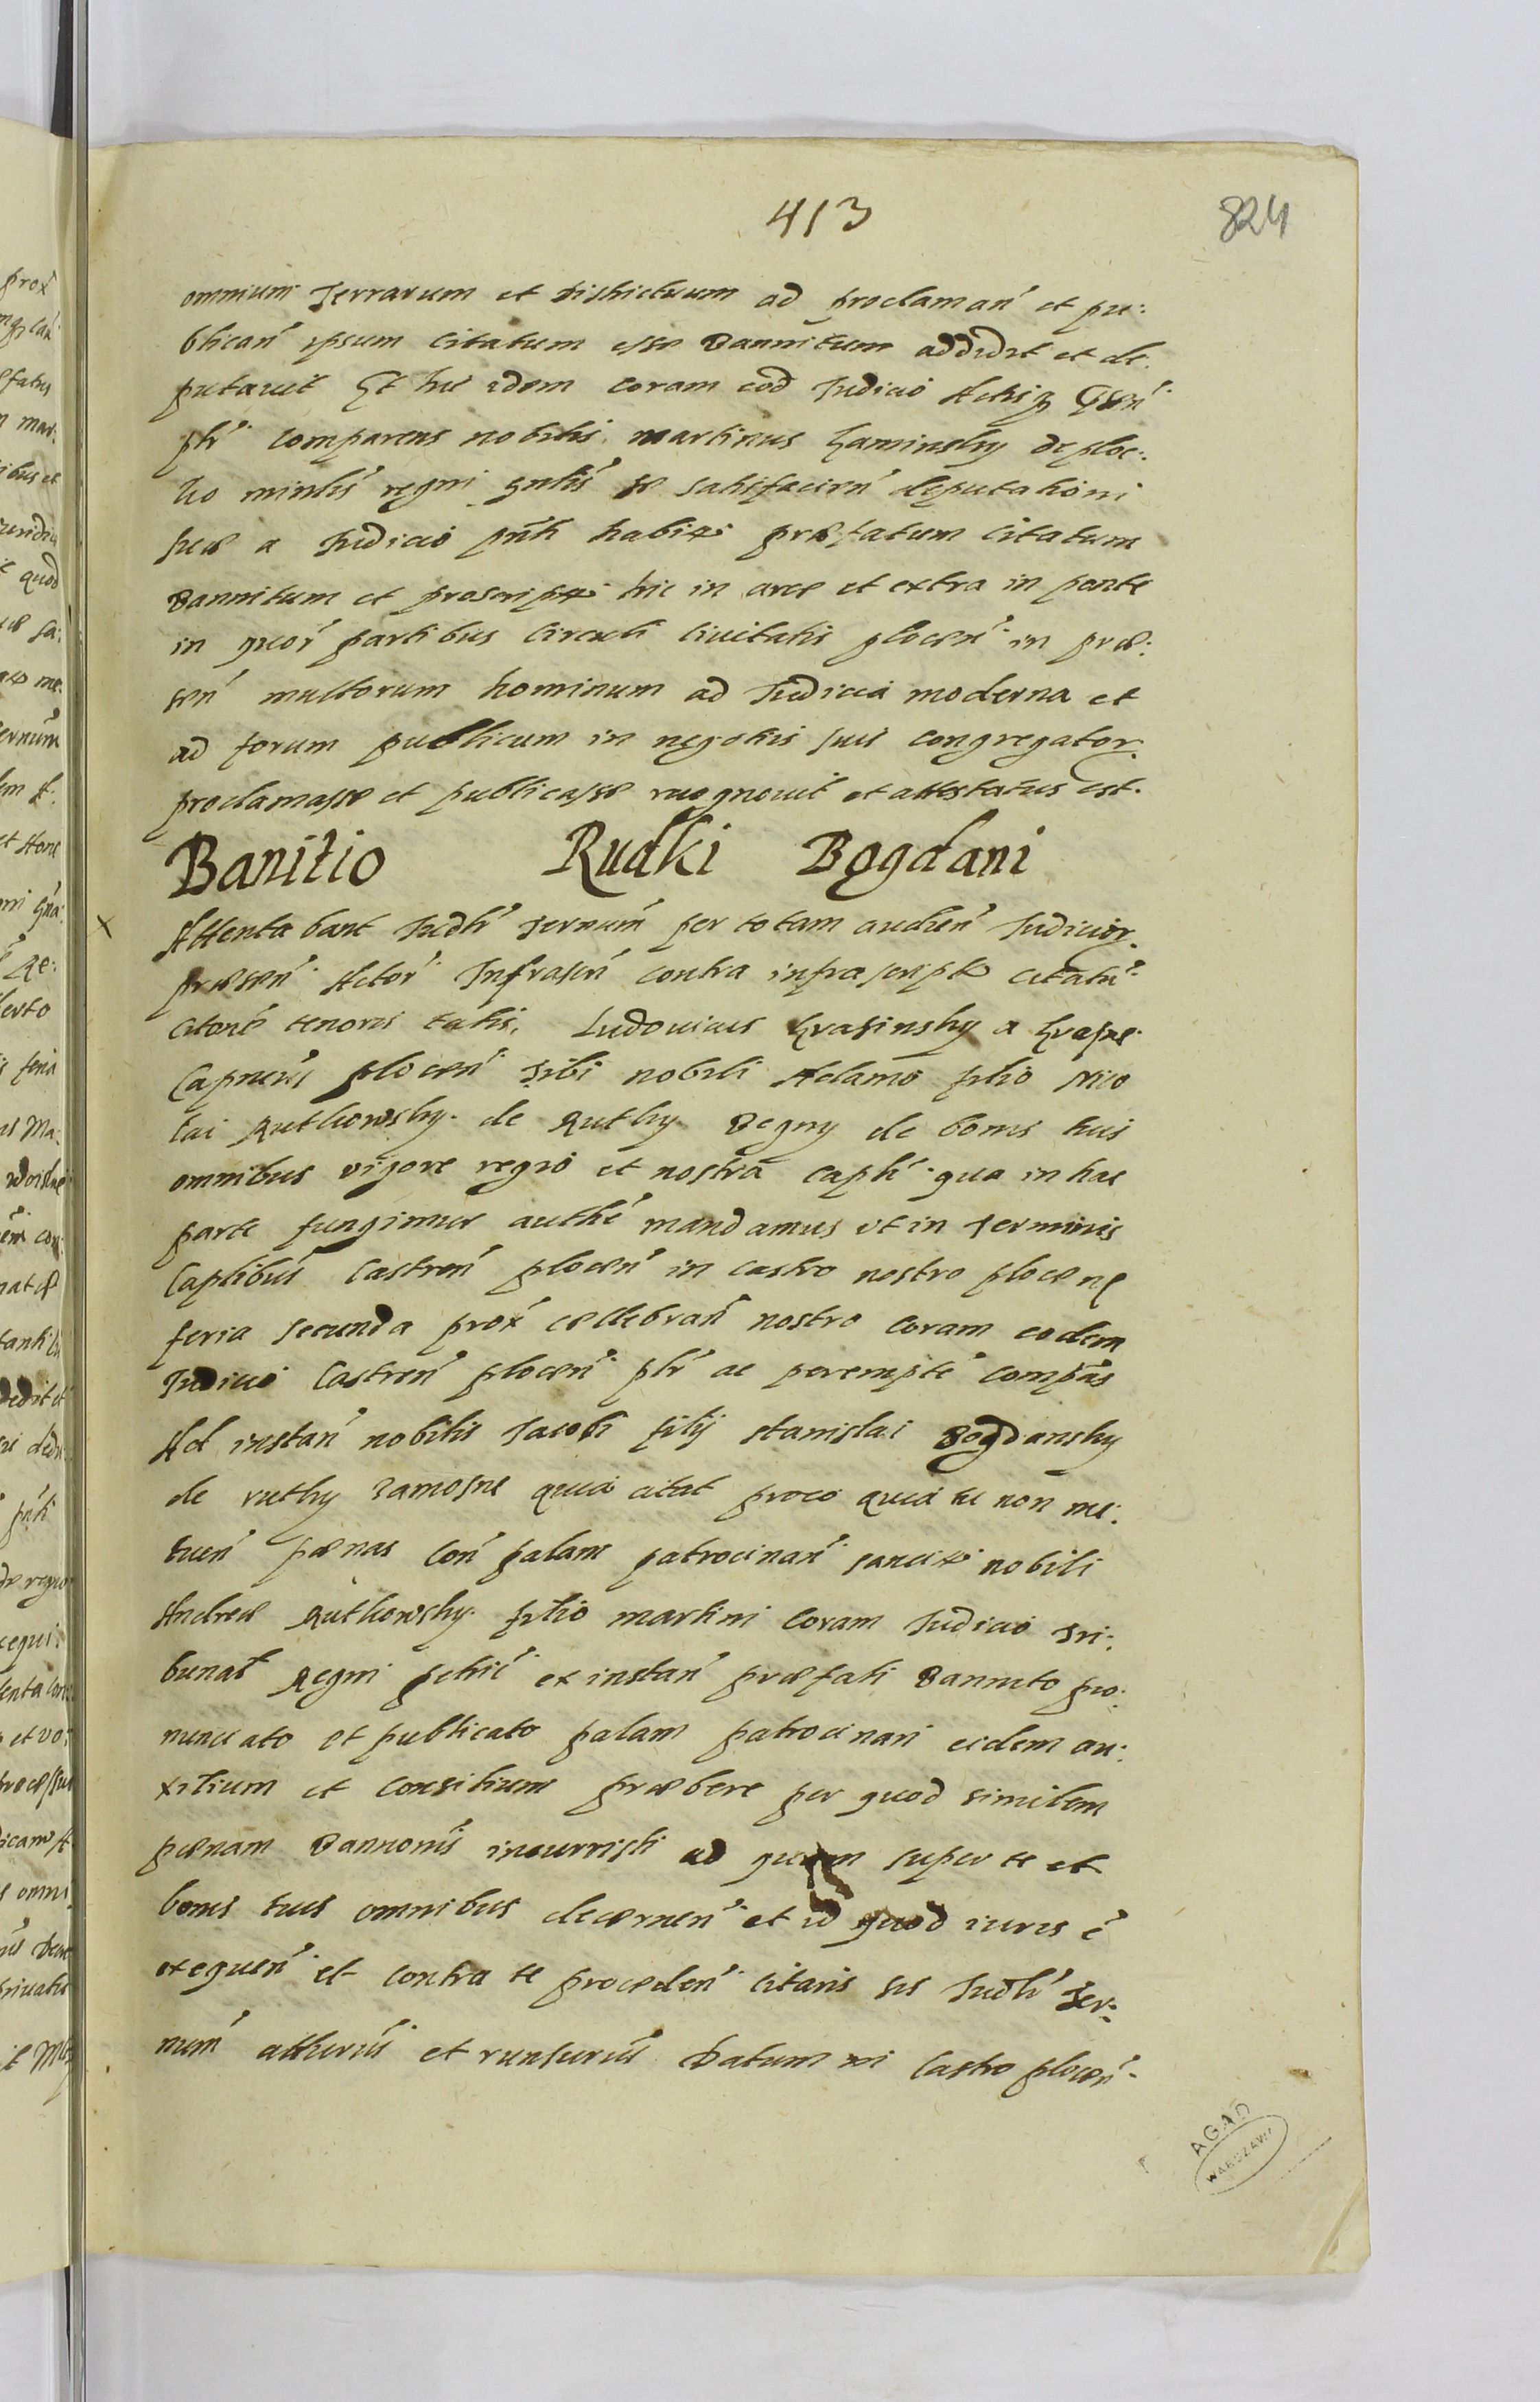 413
824
omnium Terrarum et districtuum ad proclaman̄ et pu:
blican̄ ipsum citatum esse Bannitum addidit et de:
putauit Et hic idem coram eod̄ Iudicio Actisq3
pl̄r comparens nobilis martinus Kaminsky de ploc:
ko min̄lis regni gn̄lis se satisfacien̄ deputationi
suæ a Iudicio pn̄ti habitæ præfatum citatum
Bannitum et proscriptū hic in arce et extra in ponte
in quor̄ partibus circuli ciuitatis plocen̄ in præ:
sen̄ multorum hominum ad Iudicia moderna et
ad forum publicum in negotiis suis congregator̄
proclamasse et publicasse recognouit et attestatus est.
Banitio Rudki Bogdani
x
Attentabant Iudl̄r Termin̄ per totam audien̄ Iudicior̄
præsen̄ Actor̄ Infrascr̄ contra infrascriptū citatū
citon̄e tenoris talis. Ludouicus Krasinsky a Krasne
Capneus plocen̄ Tibi nobili Adamo filio Nico
lai Rutkowsky de Rutky Begny de bonis tuis
omnibus vigore regio et nostra capl̄i qua in hac
parte fungimur autht̄e mandamus vt in Terminis
Caplibus Castren̄ plocen̄ in castro nostro plocen̄
feria secunda prox̄ cællebran̄ nostro coram eodem
Iudicio Castren̄ plocen̄ pl̄r ac perempt̄e compās
Ad instan̄ nobilis Iacobi filij stanislai Bogdansky
de rutky Zamosne qui citat pro eo quia tu non me:
tuen̄ pænas con̄ palam patrocinan̄ sancitā nobili
Andreæ Rutkowsky filio martini coram Iudicio Tri:
bunal Regni ex instan̄ præfati Bannito pro:
nunciato et publicato palam patrocinari eidem au:
xilium et consilium præbere per quod similem
pænam Bannonis incurristi ad quam super te et
bonis tuis omnibus decernen̄ et id quod iuris ē
exequen̄ et contra te proceden̄ citaris sis Iudl̄r Ter:
min̄ attenturus et runsurus Datum in Castro plocen̄
AGAD
WARSZAWA